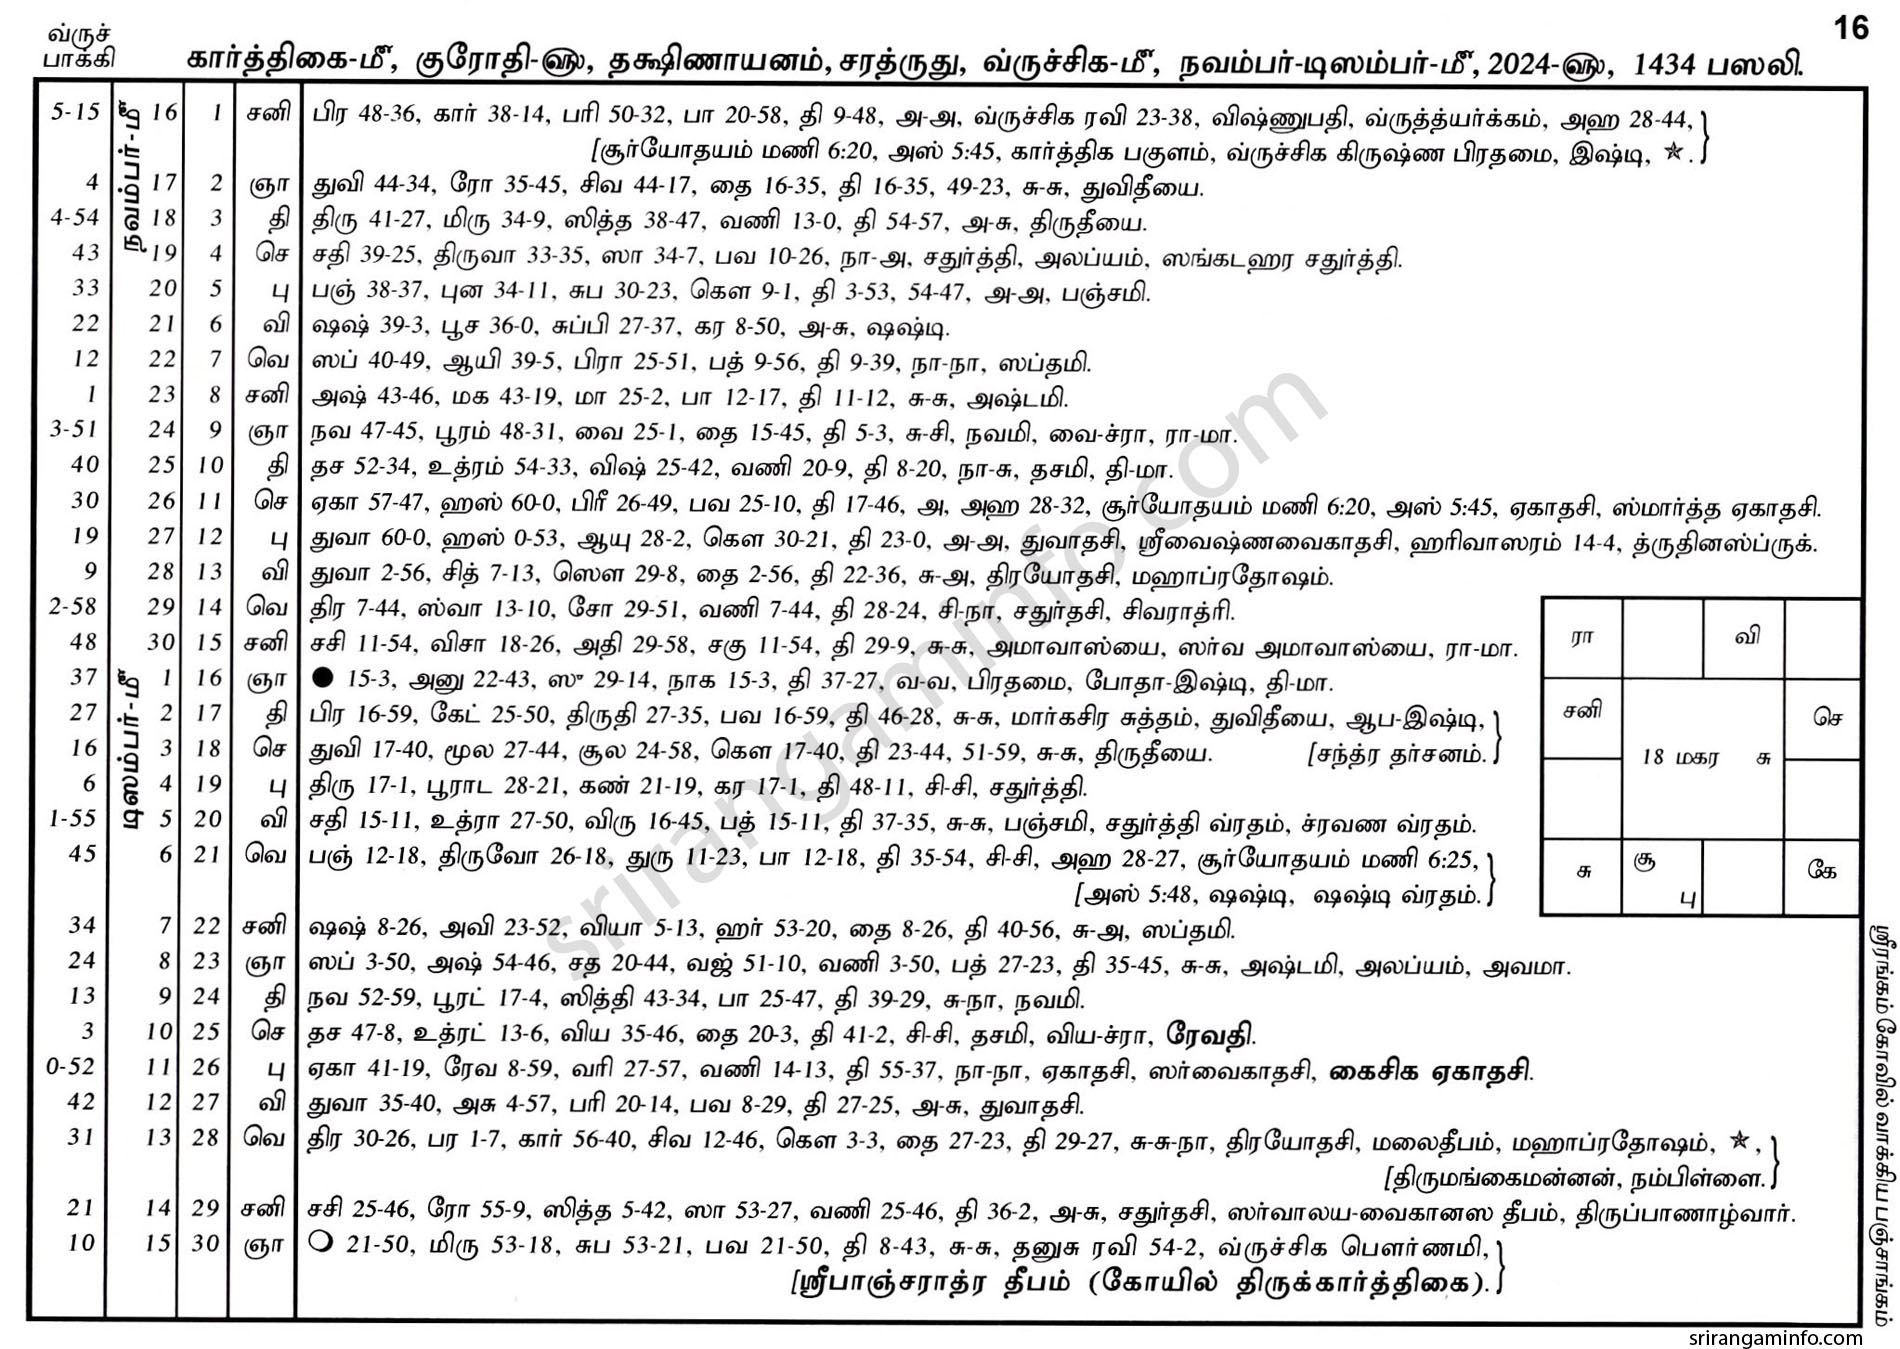 16
வ்ருச்
பாக்கி
கார்த்திகை-மீ, குரோதி-௵, தக்ஷிணாயனம், சரத்ருது, வ்ருச்சிக-மீ, நவம்பர்-டிஸம்பர்-மீ, 2024-௵, 1434 பஸலி.
நவம்பர்-மீ
5-15 16 1 சனி பிர 48-36, கார் 38-14, பரி 50-32, பா 20-58, தி 9-48, அ-அ, வ்ருச்சிக ரவி 23-38, விஷ்ணுபதி, வ்ருத்த்யர்க்கம், அஹ 28-44,
[சூர்யோதயம் மணி 6:20, அஸ் 5:45, கார்த்திக பகுளம், வ்ருச்சிக கிருஷ்ண பிரதமை, இஷ்டி, ★.
4 17 2 ஞா துவி 44-34, ரோ 35-45, சிவ 44-17, தை 16-35, தி 16-35, 49-23, சு-சு, துவிதீயை.
4-54 18 3 தி திரு 41-27, மிரு 34-9, ஸித்த 38-47, வணி 13-0, தி 54-57, அ-சு, திருதீயை.
43 19 4 செ சதி 39-25, திருவா 33-35, ஸா 34-7, பவ 10-26, நா-அ, சதுர்த்தி, அலப்யம், ஸங்கடஹர சதுர்த்தி.
33 20 5 பு பஞ் 38-37, புன 34-11, சுப 30-23, கௌ 9-1, தி 3-53, 54-47, அ-அ, பஞ்சமி.
22 21 6 வி ஷஷ் 39-3, பூச 36-0, சுப்பி 27-37, கர 8-50, அ-சு, ஷஷ்டி.
12 22 7 வெ ஸப் 40-49, ஆயி 39-5, பிரா 25-51, பத் 9-56, தி 9-39, நா-நா, ஸப்தமி.
1 23 8 சனி அஷ் 43-46, மக 43-19, மா 25-2, பா 12-17, தி 11-12, சு-சு, அஷ்டமி.
3-51 24 9 ஞா நவ 47-45, பூரம் 48-31, வை 25-1, தை 15-45, தி 5-3, சு-சி, நவமி, வை-ச்ரா, ரா-மா.
40 25 10 தி தச 52-34, உத்ரம் 54-33, விஷ் 25-42, வணி 20-9, தி 8-20, நா-சு, தசமி, தி-மா.
30 26 11 செ ஏகா 57-47, ஹஸ் 60-0, பிரீ 26-49, பவ 25-10, தி 17-46, அ, அஹ 28-32, சூர்யோதயம் மணி 6:20, அஸ் 5:45, ஏகாதசி, ஸ்மார்த்த ஏகாதசி.
19 27 12 பு துவா 60-0, ஹஸ் 0-53, ஆயு 28-2, கௌ 30-21, தி 23-0, அ-அ, துவாதசி, ஸ்ரீவைஷ்ணவைகாதசி, ஹரிவாஸரம் 14-4, த்ருதினஸ்ப்ருக்.
9 28 13 வி துவா 2-56, சித் 7-13, ஸௌ 29-8, தை 2-56, தி 22-36, சு-அ, திரயோதசி, மஹாப்ரதோஷம்.
2-58 29 14 வெ திர 7-44, ஸ்வா 13-10, சோ 29-51, வணி 7-44, தி 28-24, சி-நா, சதுர்தசி, சிவராத்ரி.
48 30 15 சனி சசி 11-54, விசா 18-26, அதி 29-58, சகு 11-54, தி 29-9, சு-சு, அமாவாஸ்யை, ஸர்வ அமாவாஸ்யை, ரா-மா.
டிஸம்பர்-மீ
37 1 16 ஞா ● 15-3, அனு 22-43, ஸு 29-14, நாக 15-3, தி 37-27, வ-வ, பிரதமை, போதா-இஷ்டி, தி-மா.
27 2 17 தி பிர 16-59, கேட் 25-50, திருதி 27-35, பவ 16-59, தி 46-28, சு-சு, மார்கசிர சுத்தம், துவிதீயை, ஆப-இஷ்டி,
16 3 18 செ துவி 17-40, மூல 27-44, சூல 24-58, கௌ 17-40, தி 23-44, 51-59, சு-சு, திருதீயை. [சந்த்ர தர்சனம்.
6 4 19 பு திரு 17-1, பூராட 28-21, கண் 21-19, கர 17-1, தி 48-11, சி-சி, சதுர்த்தி.
1-55 5 20 வி சதி 15-11, உத்ரா 27-50, விரு 16-45, பத் 15-11, தி 37-35, சு-சு, பஞ்சமி, சதுர்த்தி வ்ரதம், ச்ரவண வ்ரதம்.
45 6 21 வெ பஞ் 12-18, திருவோ 26-18, துரு 11-23, பா 12-18, தி 35-54, சி-சி, அஹ 28-27, சூர்யோதயம் மணி 6:25,
[அஸ் 5:48, ஷஷ்டி, ஷஷ்டி வ்ரதம்.
34 7 22 சனி ஷஷ் 8-26, அவி 23-52, வியா 5-13, ஹர் 53-20, தை 8-26, தி 40-56, சு-அ, ஸப்தமி.
24 8 23 ஞா ஸப் 3-50, அஷ் 54-46, சத 20-44, வஜ் 51-10, வணி 3-50, பத் 27-23, தி 35-45, சு-சு, அஷ்டமி, அலப்யம், அவமா.
13 9 24 தி நவ 52-59, பூரட் 17-4, ஸித்தி 43-34, பா 25-47, தி 39-29, சு-நா, நவமி.
3 10 25 செ தச 47-8, உத்ரட் 13-6, விய 35-46, தை 20-3, தி 41-2, சி-சி, தசமி, விய-ச்ரா, ரேவதி.
0-52 11 26 பு ஏகா 41-19, ரேவ 8-59, வரி 27-57, வணி 14-13, தி 55-37, நா-நா, ஏகாதசி, ஸர்வைகாதசி, கைசிக ஏகாதசி.
42 12 27 வி துவா 35-40, அசு 4-57, பரி 20-14, பவ 8-29, தி 27-25, அ-சு, துவாதசி.
31 13 28 வெ திர 30-26, பர 1-7, கார் 56-40, சிவ 12-46, கௌ 3-3, தை 27-23, தி 29-27, சு-சு-நா, திரயோதசி, மலைதீபம், மஹாப்ரதோஷம், ★,
[திருமங்கைமன்னன், நம்பிள்ளை.
21 14 29 சனி சசி 25-46, ரோ 55-9, ஸித்த 5-42, ஸா 53-27, வணி 25-46, தி 36-2, அ-சு, சதுர்தசி, ஸர்வாலய-வைகானஸ தீபம், திருப்பாணாழ்வார்.
10 15 30 ஞா ○ 21-50, மிரு 53-18, சுப 53-21, பவ 21-50, தி 8-43, சு-சு, தனுசு ரவி 54-2, வ்ருச்சிக பௌர்ணமி,
[ஸ்ரீபாஞ்சராத்ர தீபம் (கோயில் திருக்கார்த்திகை).
ரா வி
சனி செ
18 மகர சு
சு சூ பு கே
ஸ்ரீரங்கம் கோவில் வாக்கிய பஞ்சாங்கம்
srirangaminfo.com
srirangaminfo.com